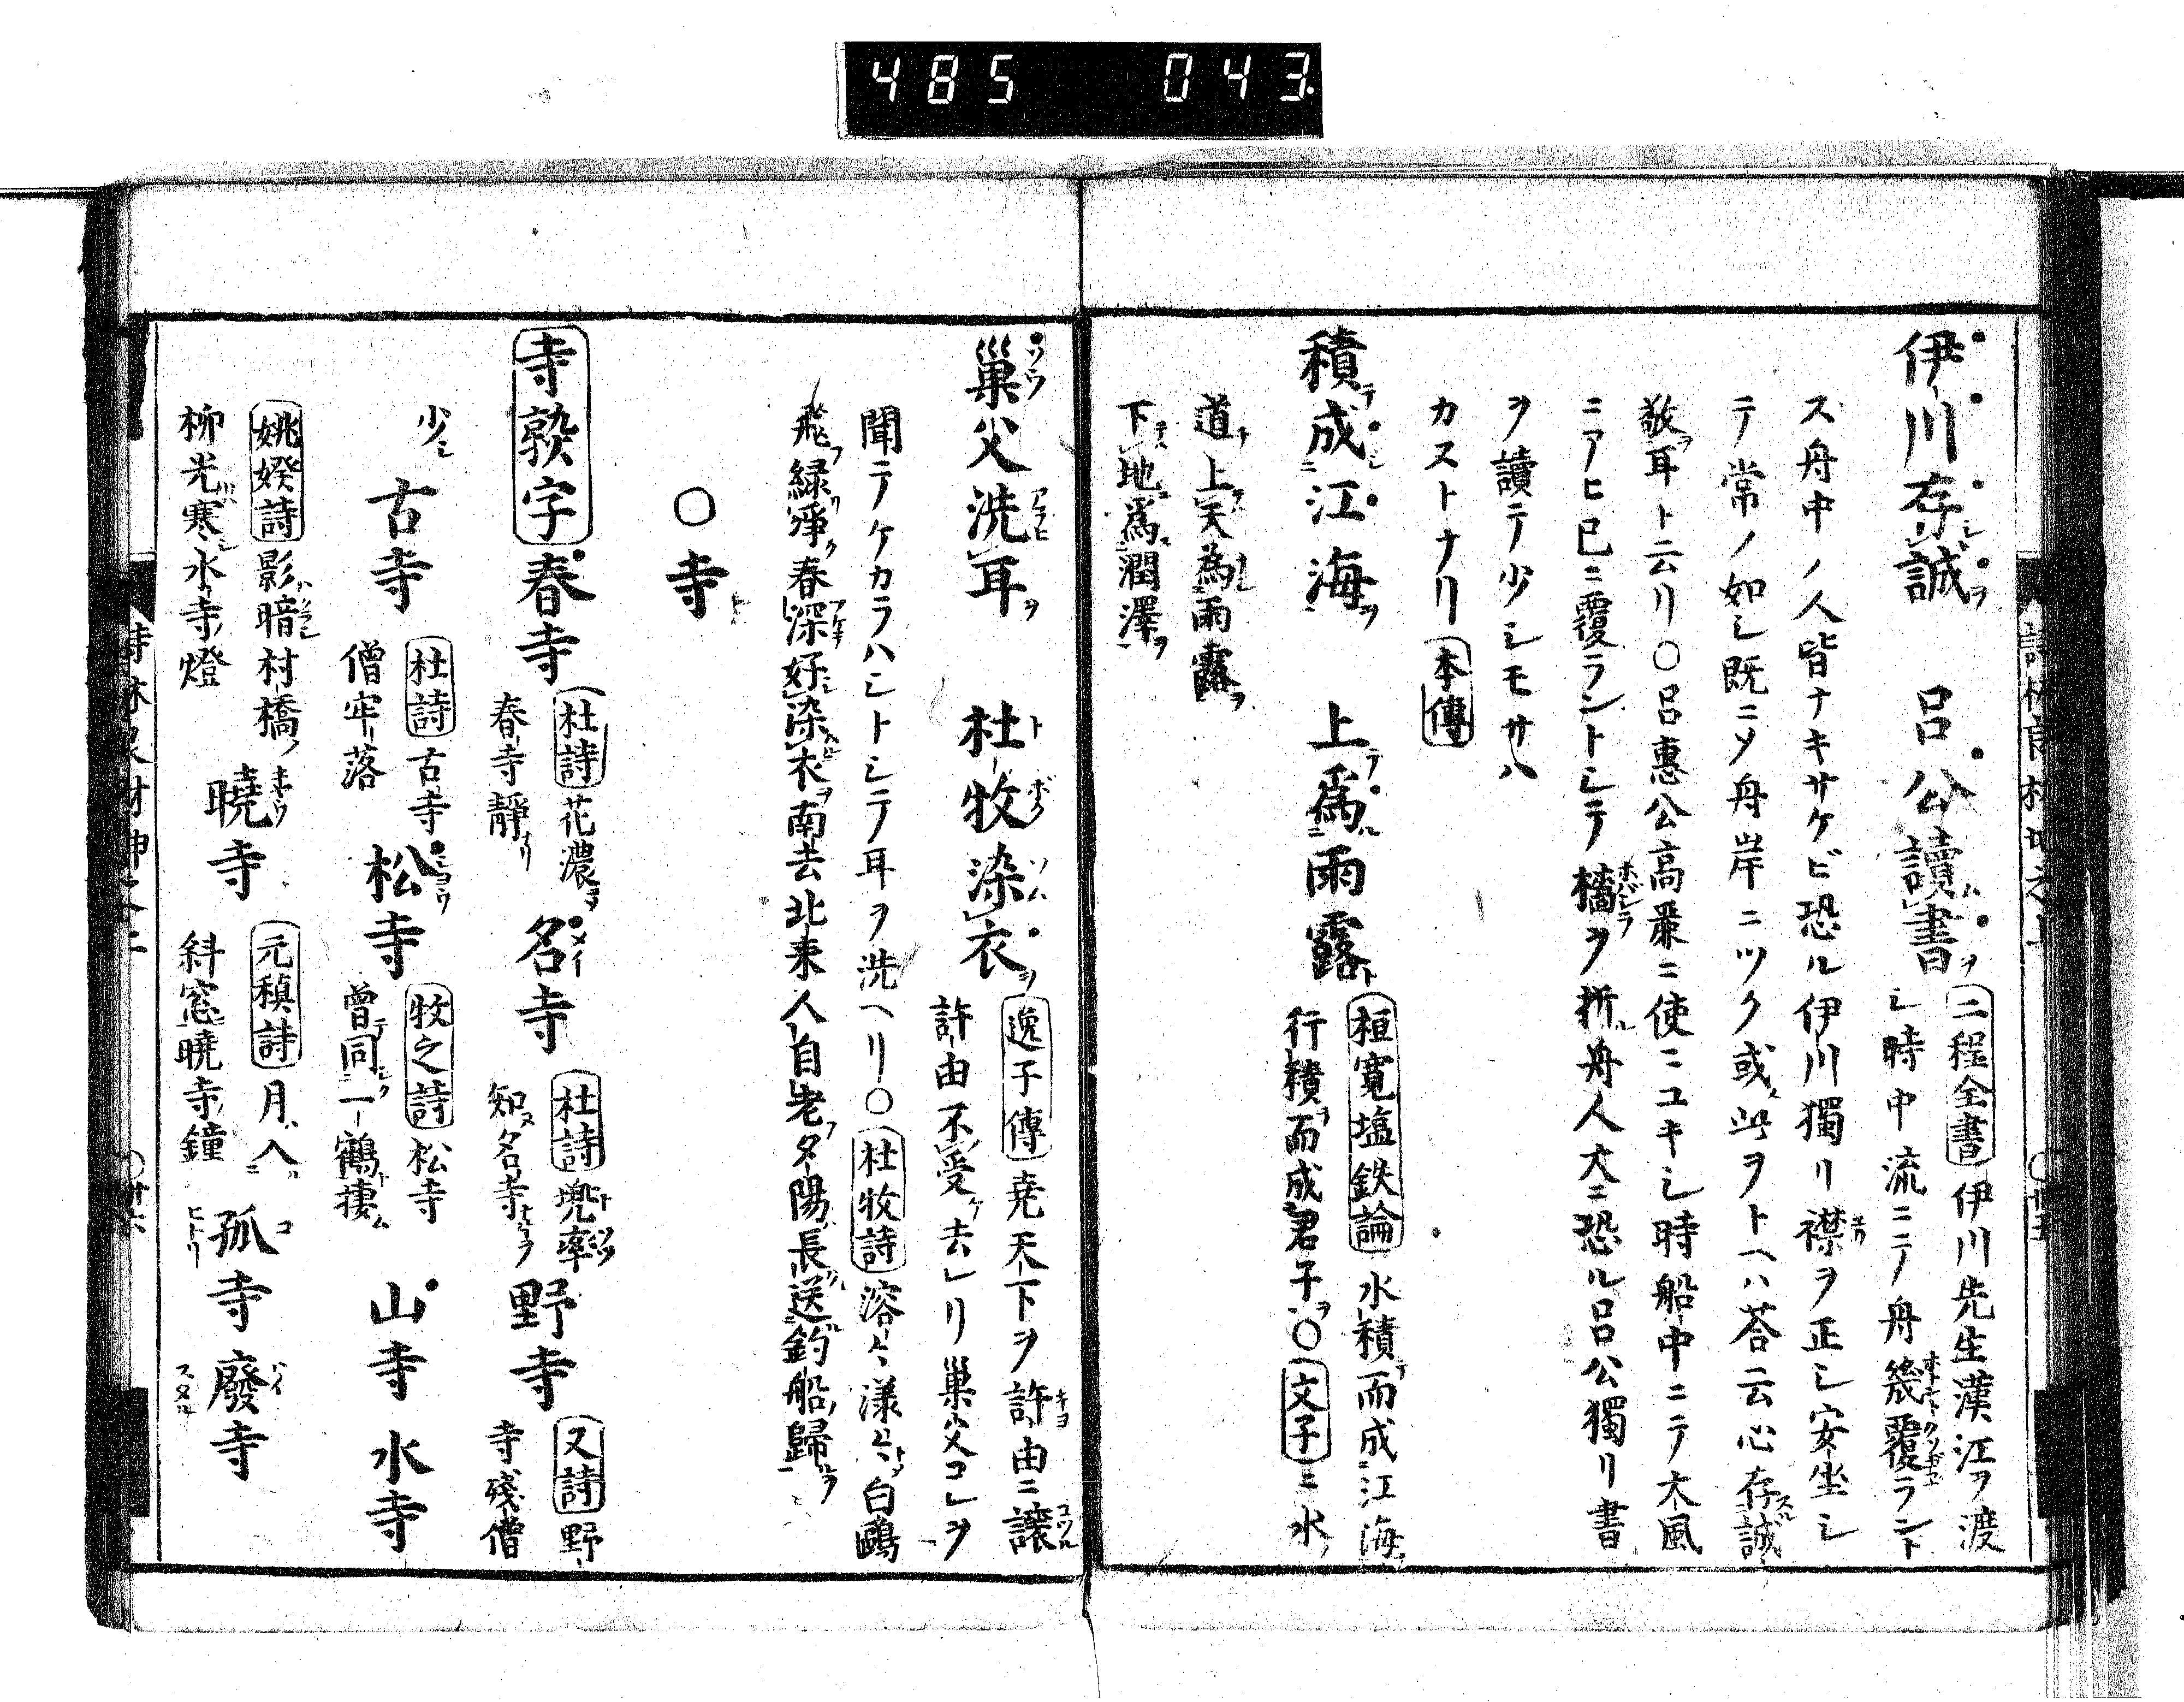 485 043
伊川存誠 呂公讀書
二程全書 伊川先生漢江ヲ渡
シ時中流ニテ舟幾覆ラント
ス舟中ノ人皆ナキサケビ恐ル伊川獨リ襟ヲ正シ安坐シ
テ常ノ如シ既ニ〆舟岸ニツク或此ヲトヘハ荅云心存誠
敬耳ト云リ○呂惠公高麗ニ使ニユキシ時船中ニテ大風
ニアヒ已ニ覆ラントシテ檣ヲ折舟人大ニ恐ル呂公獨リ書
ヲ讀テ少シモサハ
カストナリ 本傳
積成江海 上爲雨露
桓寛塩鉄論 水積而成江海
行積而成君子○文子ニ水
道上天為雨露
下地為潤澤
巢父洗耳 杜牧染衣
逸子傳 堯天下ヲ許由ニ讓
許由不受去レリ巢父コレヲ
聞テケカラハシトシテ耳ヲ洗ヘリ○杜牧詩 溶々漾々白鷗
飛緑淨春深好染衣南去北来人自老夕陽長送釣船歸
○寺
寺熟字 春寺
杜詩 花濃
春寺靜
名寺
杜詩 兜率
知名寺
野寺
又詩 野
寺殘僧
少シ
古寺
杜詩 古寺
僧牢落
松寺
牧之詩 松寺
曾同一鶴棲
山寺 水寺
姚媛詩 影暗村橋
柳光寒水寺燈
曉寺
元稹詩 月入
斜窓曉寺鐘
孤寺 廢寺